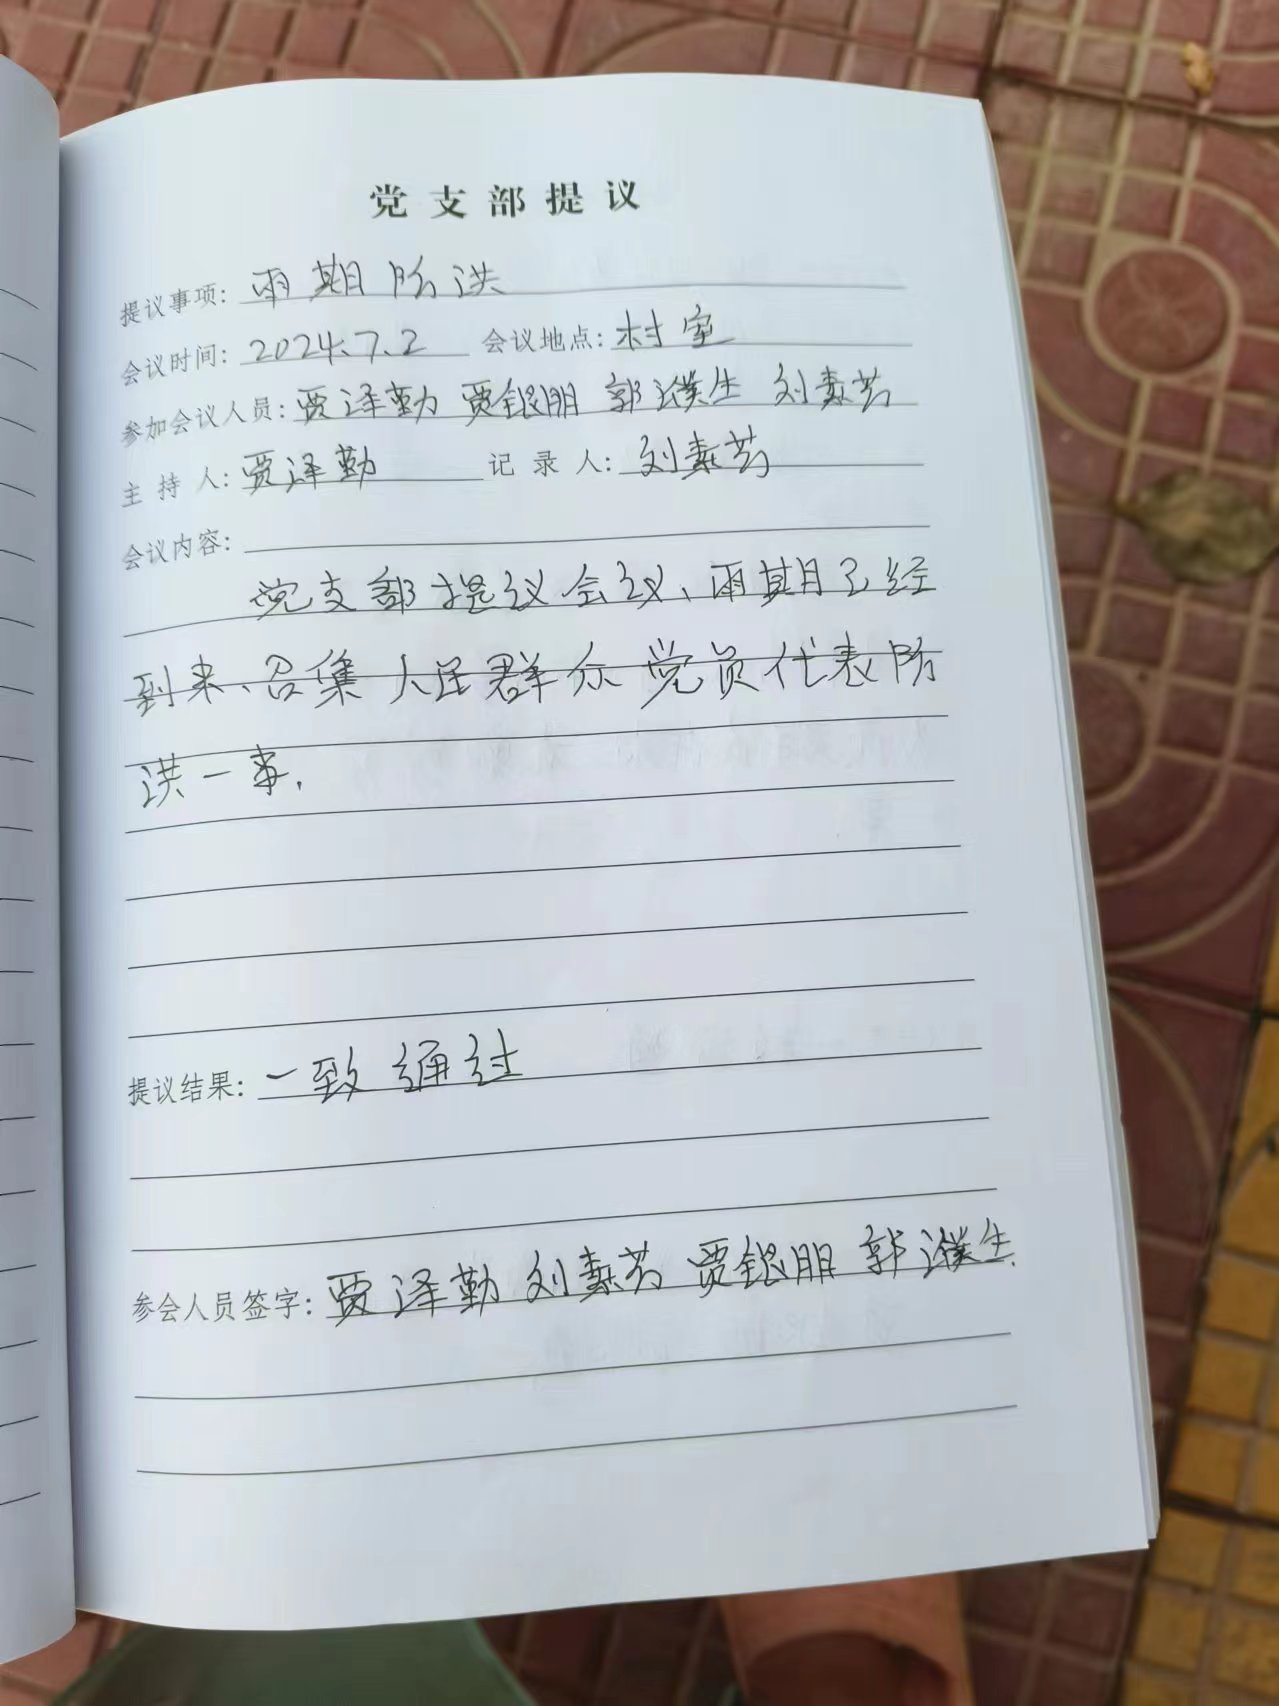 党支部提议
提议事项: 雨期防洪
会议时间: 2024.7.2 会议地点: 村室
参加会议人员: 贾泽勤 贾银朋 郭濮生 刘素芳
主持人: 贾泽勤 记录人: 刘素芳
会议内容:
党支部提议会议、雨期已经
到来、召集人民群众党员代表防
洪一事.
提议结果: 一致通过
参会人员签字: 贾泽勤 刘素芳 贾银朋 郭濮生.